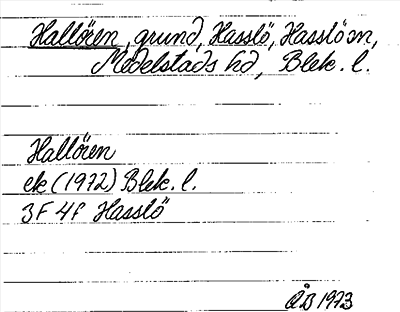 Hallören, grund, Hasslö, Hasslö sn,
Medelstads hd, Blek. l.
Hallören
ek (1972) Blek. l.
3F 4f Hasslö
ÅB 1973